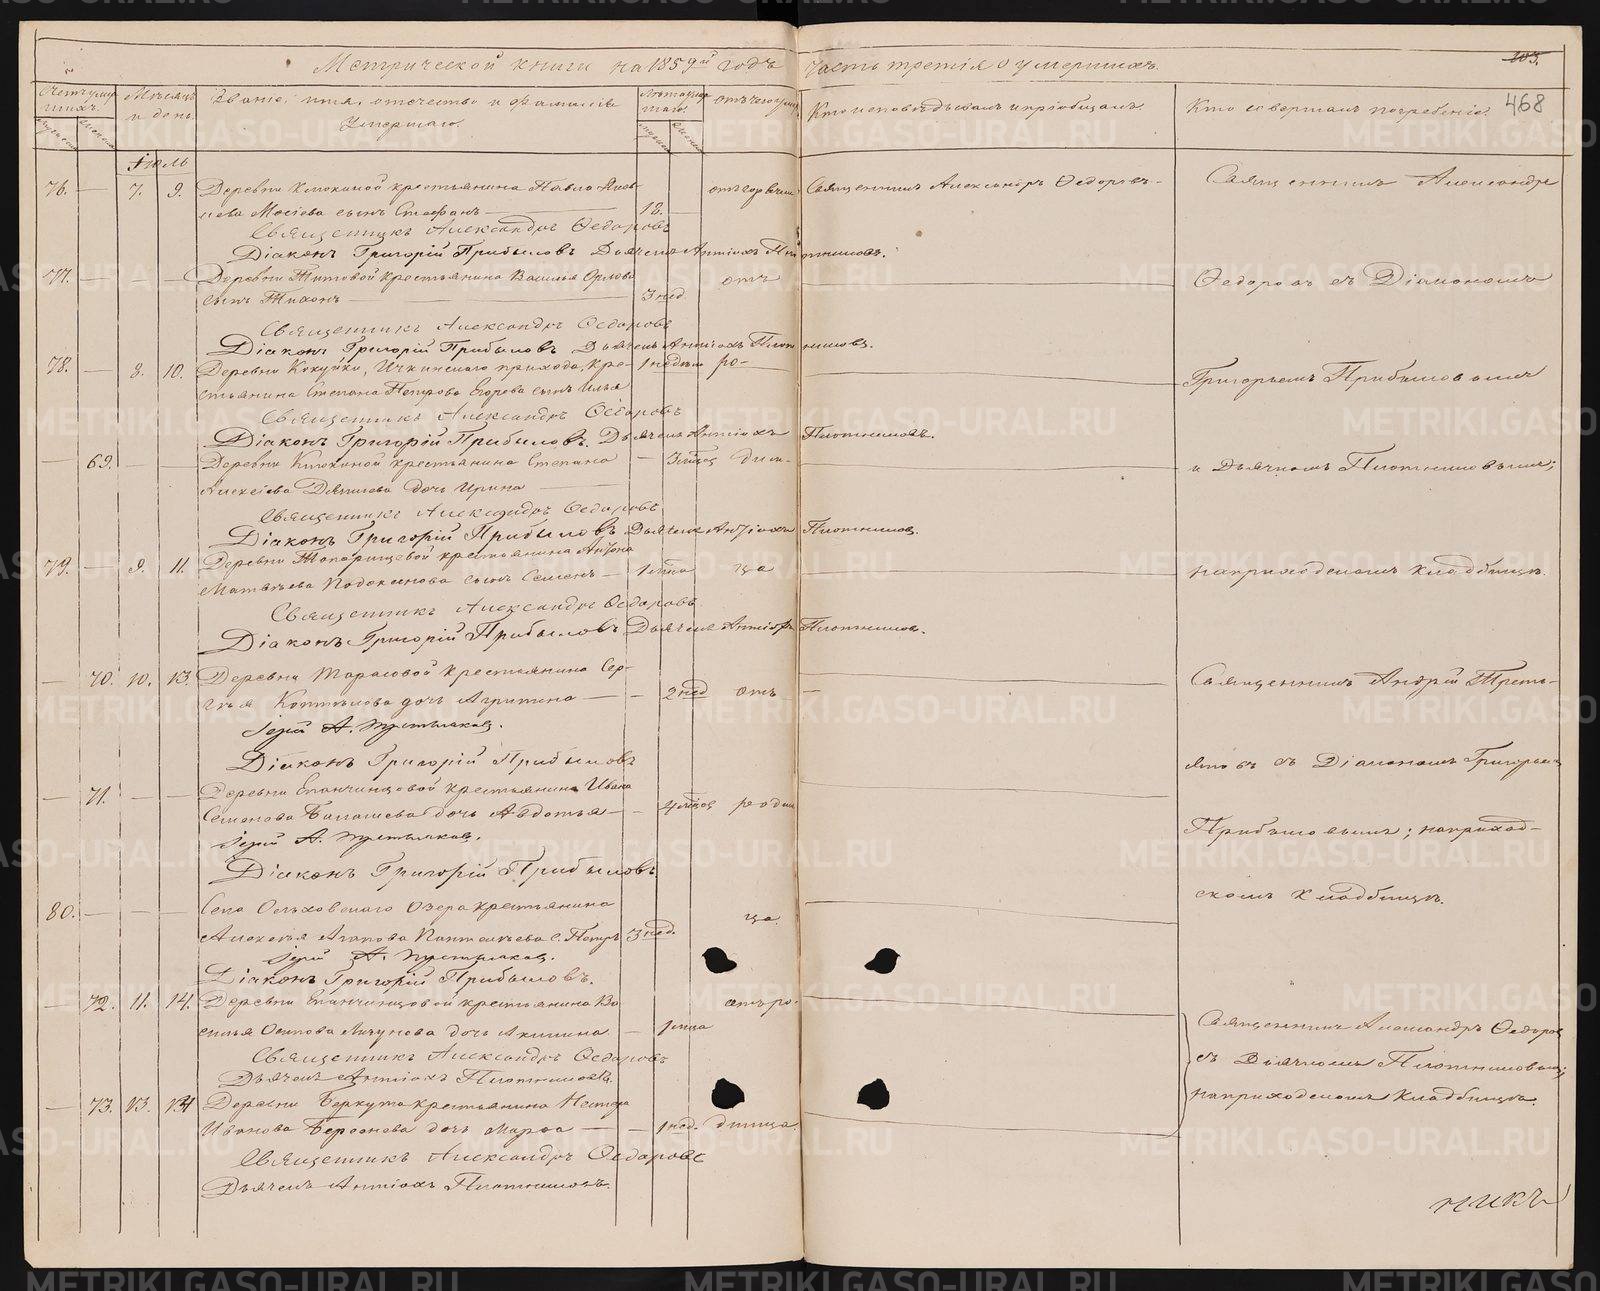 Метрической книги на 1859й годъ часть третія о умершихъ.
103.
468
Счетъ умершихъ.
Мѣсяцъ и день.
Званіе, имя, отечество и фамилія Умершаго.
Лѣта умершаго.
отъ чего умеръ
Кто исповѣдывалъ и пріобщалъ.
Кто совершалъ погребеніе.
Іюль
76. — 7. 9. Деревни Клюкиной крестьянина Павла
Мосіева сынъ Стефанъ — 12. отъ горячки Священникъ Александръ Ѳедоровъ. Священникъ Александръ
Священникъ Александръ Ѳедоровъ
Діаконъ Григорій Прибыловъ Дьячекъ Антіохъ Плотниковъ.
77. — — — Деревни Титовой крестьянина Василья Орлова
сынъ Тихонъ — 3 нед. отъ — Ѳедоровъ съ Діакономъ
Священникъ Александръ Ѳедоровъ
Діаконъ Григорій Прибыловъ Дьячекъ Антіохъ Плотниковъ.
78. — 8. 10. Деревни Кокуйки, Ичкинскаго прихода, кре- 1 недѣли ро-
стьянина Степана Петрова Егорева сынъ Илья — Григорьемъ Прибыловымъ
Священникъ Александръ Ѳедоровъ
Діаконъ Григорій Прибыловъ. Дьячекъ Антіохъ Плотниковъ.
— 69. — — Деревни Клюкиной крестьянина Степана — 3 мѣсяц дим- — и Дьячкомъ Плотниковымъ;
Алексѣева Данилова дочь Ирина —
Священникъ Александръ Ѳедоровъ
Діаконъ Григорій Прибыловъ Дьячекъ Антіохъ Плотниковъ.
79. — 9. 11. Деревни Топорищевой крестьянина Антона
Матвѣева Подокинова сынъ Семенъ — 1 мѣсяца ца — на приходскомъ кладбищѣ.
Священникъ Александръ Ѳедоровъ
Діаконъ Григорій Прибыловъ Дьячекъ Антіохъ Плотниковъ.
— 70. 10. 13. Деревни Тарасовой крестьянина Сер-
гѣя Коптелова дочь Агрипина — — 2 нед отъ — Священникъ Андрей Треть-
Іерей А. Третьяковъ.
Діаконъ Григорій Прибыловъ
яковъ съ Діакономъ Григорьемъ
— 71. — — Деревни Епанчинцовой крестьянина Ивана
Семенова Балашева дочь Авдотья — — 4 мѣсяц родим
Іерей А. Третьяковъ.
Прибыловымъ; на приход-
Діаконъ Григорій Прибыловъ
скомъ кладбищѣ.
80. — — — Села Ольховскаго Озера крестьянина
Алексѣя Агапова Пантелѣева с. Петръ 3 нед. ца —
Іерей А. Третьяковъ.
Діаконъ Григорій Прибыловъ.
— 72. 11. 14. Деревни Епанчинцовой крестьянина Ва-
силья Осипова Личунова дочь Акилина — — 1 мѣсяца отъ ро- — Священникъ Александръ Ѳедоровъ
Священникъ Александръ Ѳедоровъ
съ Дьячкомъ Плотниковымъ;
Дьячекъ Антіохъ Плотниковъ.
на приходскомъ кладбищѣ.
— 73. 13. 14 Деревни Беркута крестьянина Нестера
Иванова Берсенева дочь Марѳа — — 1 нед. димца. —
Священникъ Александръ Ѳедоровъ
Дьячекъ Антіохъ Плотниковъ.
никъ
METRIKI.GASO-URAL.RU